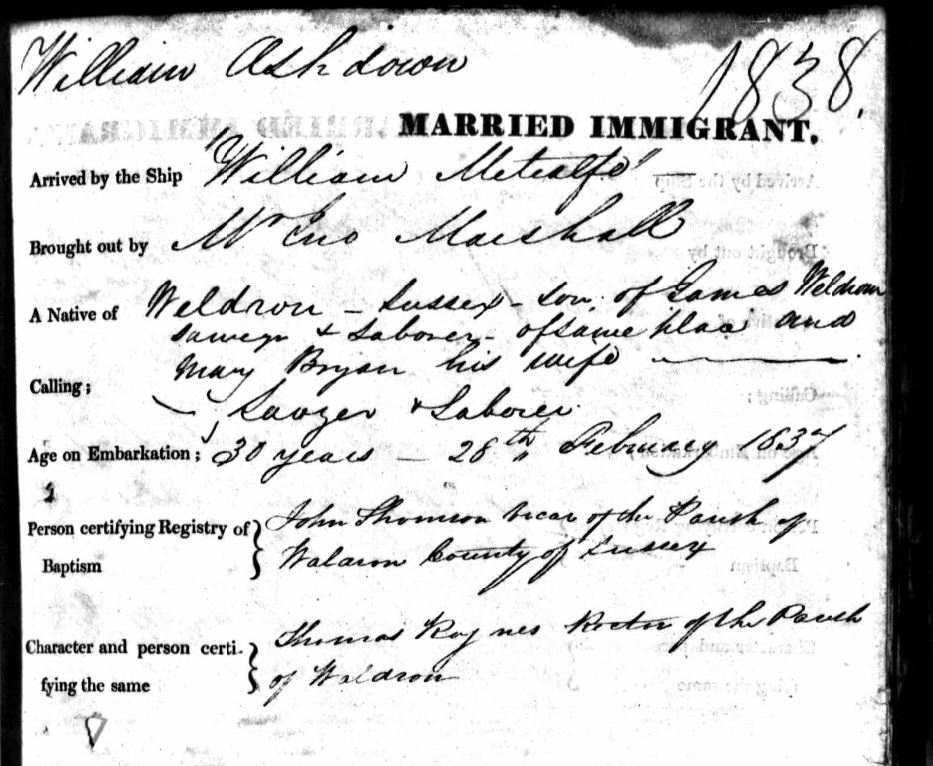 William Ashdown
1838.
MARRIED IMMIGRANT.
Arrived by the Ship "William Metcalfe"
Brought out by Mr Jno Marshall
A Native of Weldron - Sussex - Son of James Weldron
Sawyer & Laborer - of same place and
Mary Bryan his wife
Calling;
Sawyer & Laborer
Age on Embarkation; 30 years - 28th February 1837
Person certifying Registry of Baptism } John Thomson Vicar of the Parish of
Waldron County of Sussex
Character and person certifying the same } Thomas Raynes Rector of the Parish
of Waldron